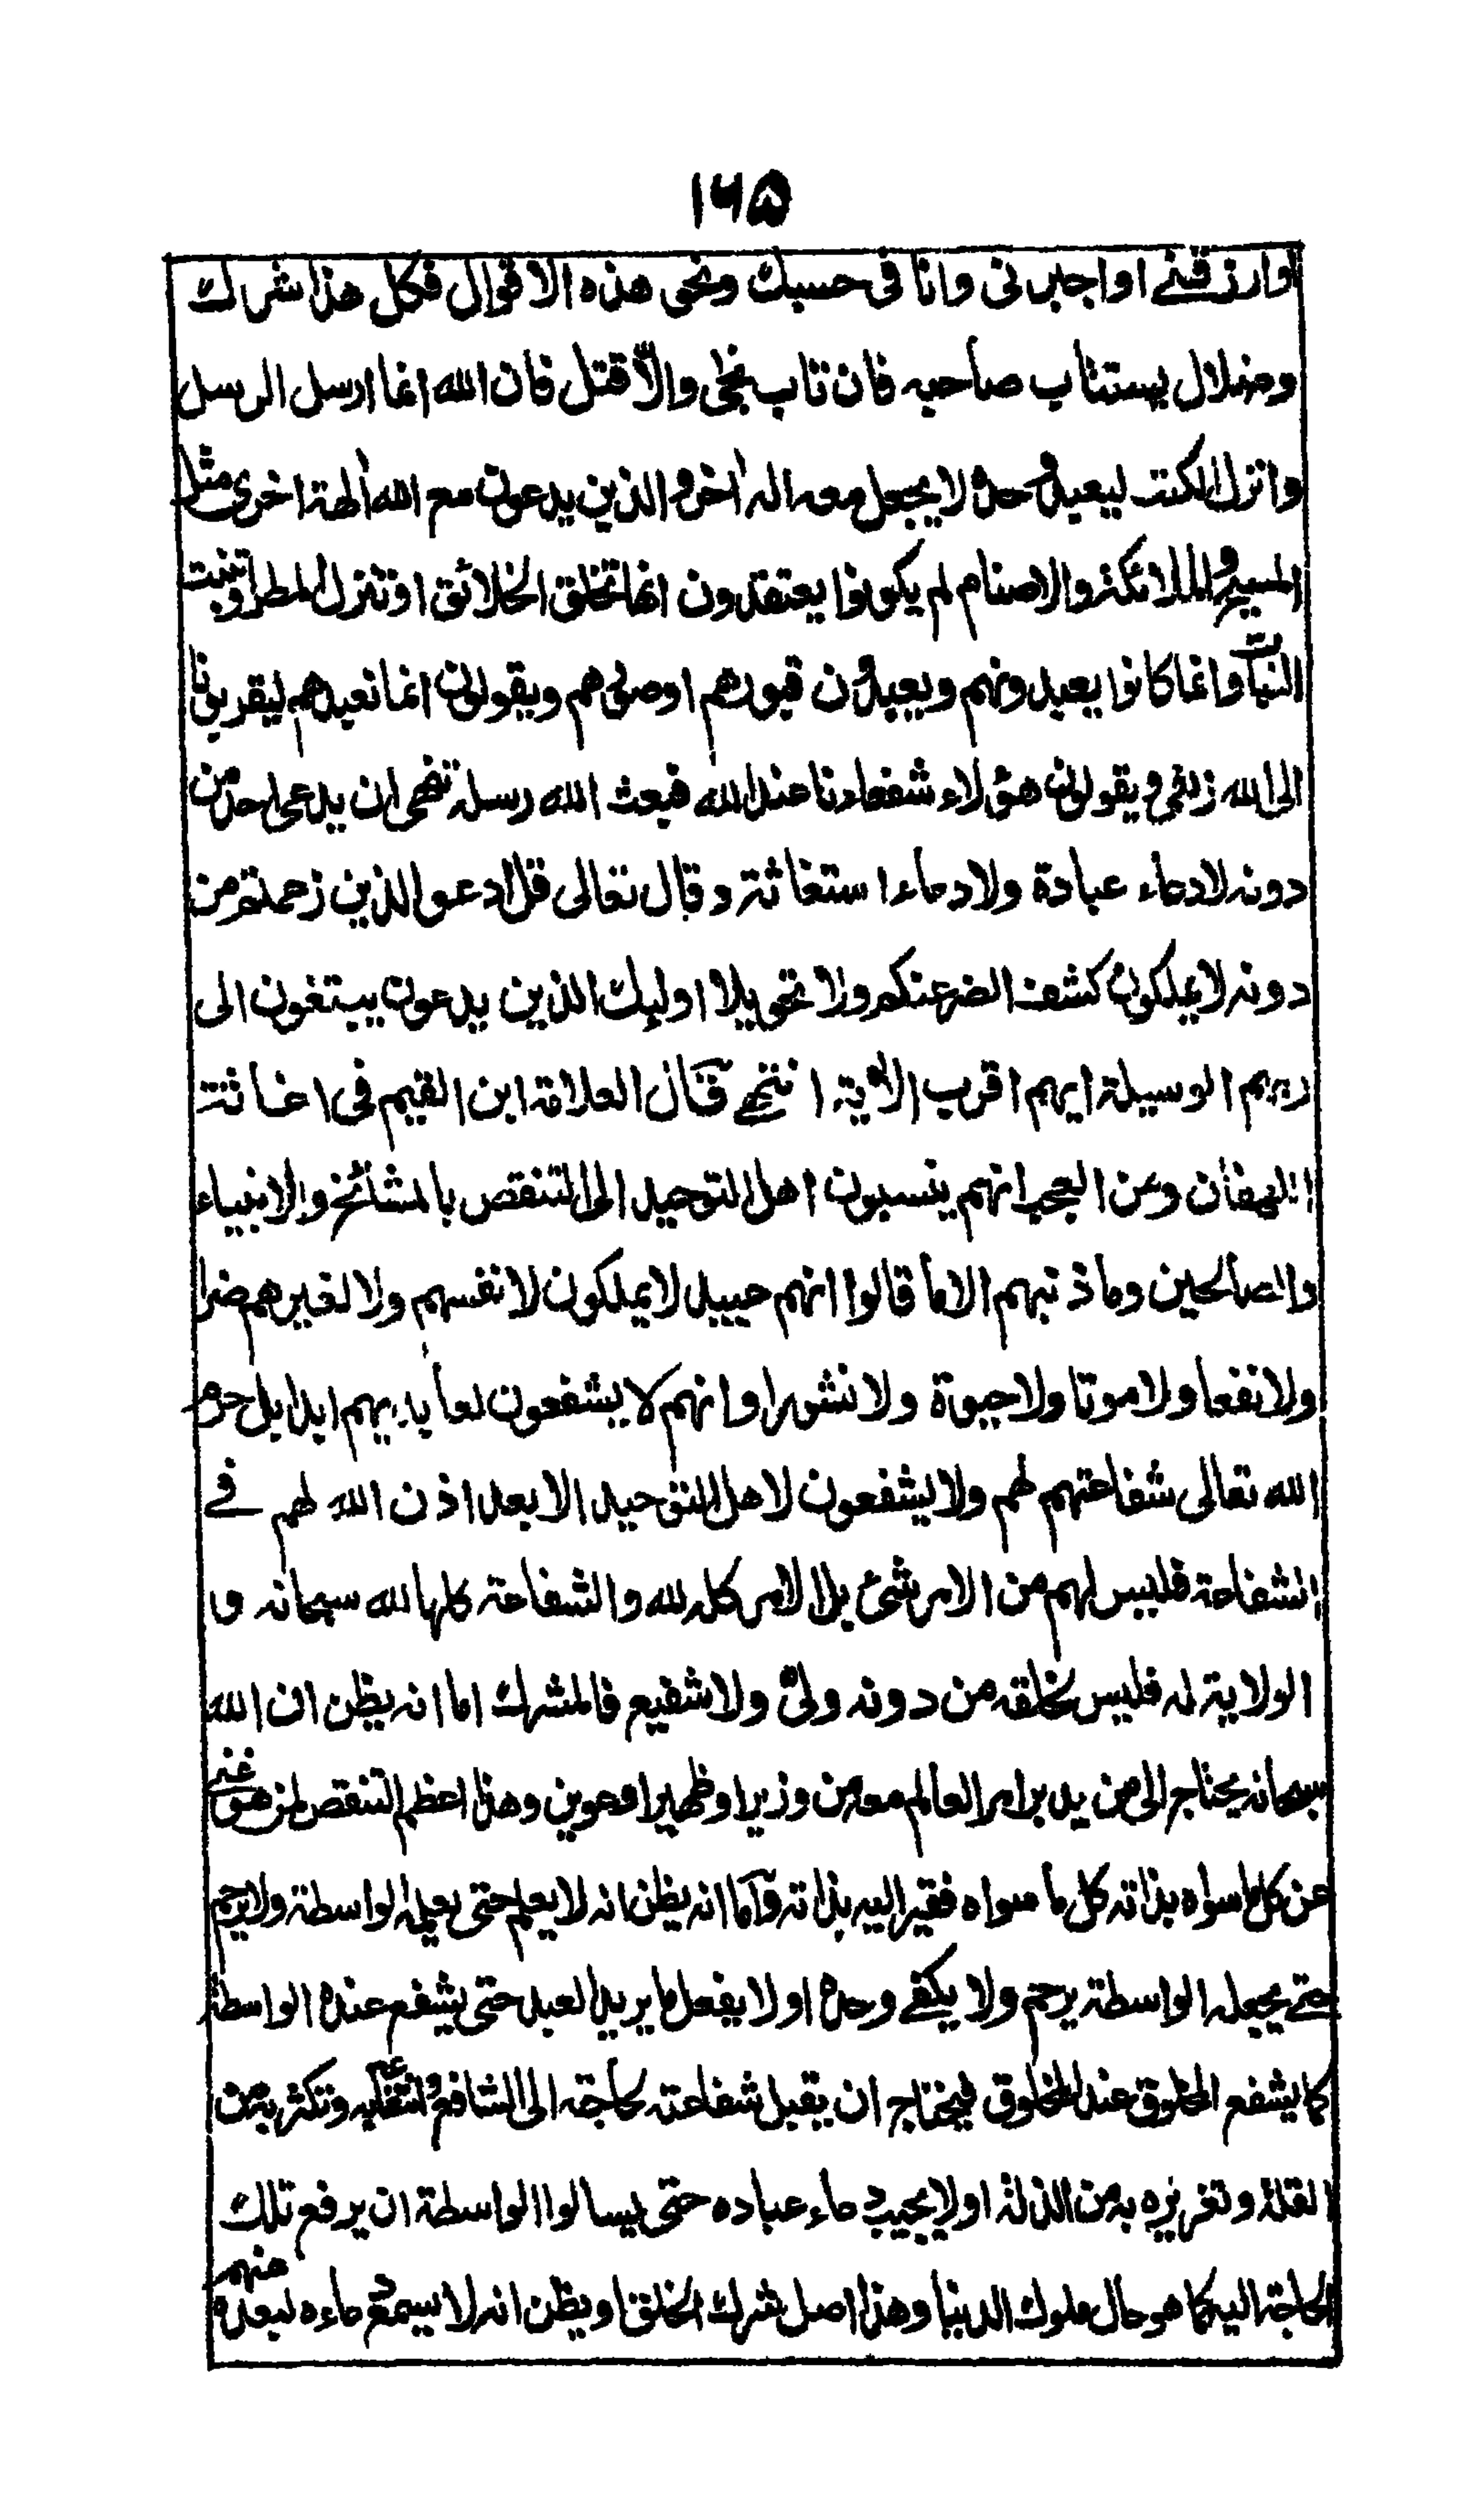 ١٦٥
اوارزقنے او اجبرنى وانا فى حسبك ونحو هذه الاقوال فكل هذا شرك
وضلال يستتاب صاحبه فان تاب نجى والّا قتل فان الله انما ارسل الرسل
وانزل الكتب ليعبد وحده لا يجعل معه اله اٰخر والذين يدعون مع الله اٰلهة اخرى مثل
المسيح والملائكة والاصنام لم يكونوا يعتقدون انها تخلق الخلائق او تنزل المطر او تنبت
النبات وانما كانوا يعبدونهم ويعبدون قبورهم او صورهم ويقولون انما نعبدهم ليقربونا
الى الله زلفى ويقولون هؤلاء شفعاءنا عند الله فبعث الله رسله تنهى ان يدعى احد من
دونه لا دعاء عبادة ولا دعاء استغاثة وقال تعالى قل ادعوا الذين زعمتم من
دونه لا يملكون كشف الضر عنكم ولا تحويلا اولئك الذين يدعون يبتغون الى
ربهم الوسيلة ايهم اقرب الاٰية انتهى وقال العلامة ابن القيم فى اغاثة
اللهفان ومن العجب انهم ينسبون اهل التوحيد الى التنقص بالمشائخ والانبياء
والصالحين وما ذنبهم الا ما قالوا انهم عبيد لا يملكون لانفسهم ولا لغيرهم ضرا
ولا نفعا ولا موتا ولا حيوة ولا نشورا وانهم لا يشفعون لعابديهم ابدا بل حرم
الله تعالى شفاعتهم لهم ولا يشفعون لاهل التوحيد الا بعد اذن الله لهم فے
الشفاعة فليس لهم من الامر شئ بل الامر كله لله والشفاعة كلها لله سبحانه و
الولاية له فليس لخلقه من دونه ولىّ ولا شفيع فالمشرك اما انه يظن ان الله
سبحانه يحتاج الى من يدبر امر العالم معه من وزير او ظهير او عوين وهذا اعظم التنقص لمن هو غنى
عن كل ما سواه بذاته كل ما سواه فقير اليه بذاته واما انه يظن انه لا يعلم حتى يعلمه الواسطة ولا يرحم
حتے يجعله الواسطة يرحم ولا يكفے وحده او لا يفعل ما يريد العبد حتى يشفع عنده الواسطة
كما يشفع المخلوق عند المخلوق فيحتاج ان يقبل شفاعته لحاجته الى الشافع وتكثره به من
القلة وتعززه به من الذلة او لا يجيب دعاء عباده حتى يسالوا الواسطة ان يرفع تلك
الحاجة اليه كما هو حال ملوك الدنيا وهذا اصل شرك الخلق او يظن انه لا يسمع دعاءه لبعده منهم